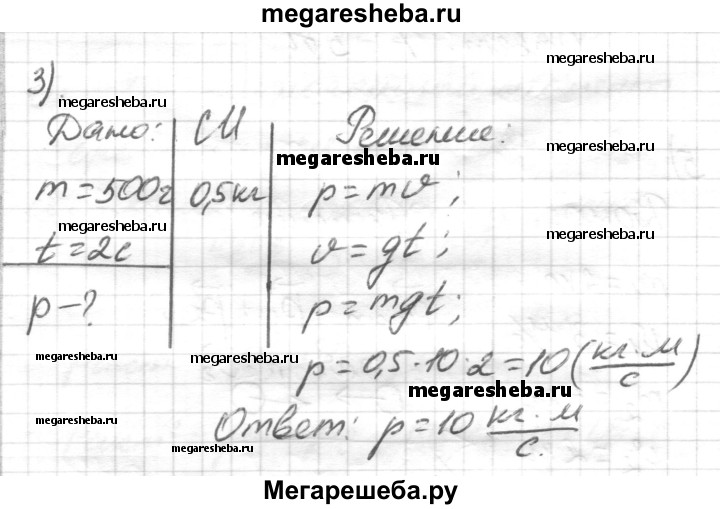 megaresheba.ru
3)
megaresheba.ru
megaresheba.ru
Дано: СИ Решение:
megaresheba.ru
megaresheba.ru
m = 500г 0,5кг p = mv;
megaresheba.ru
megaresheba.ru
t = 2с v = gt;
p - ? p = mgt;
megaresheba.ru
megaresheba.ru
megaresheba.ru
p = 0,5 · 10 · 2 = 10 (кг · м / с)
megaresheba.ru
megaresheba.ru
Ответ: p = 10 кг · м / с.
megaresheba.ru
megaresheba.ru
Мегарешеба.ру